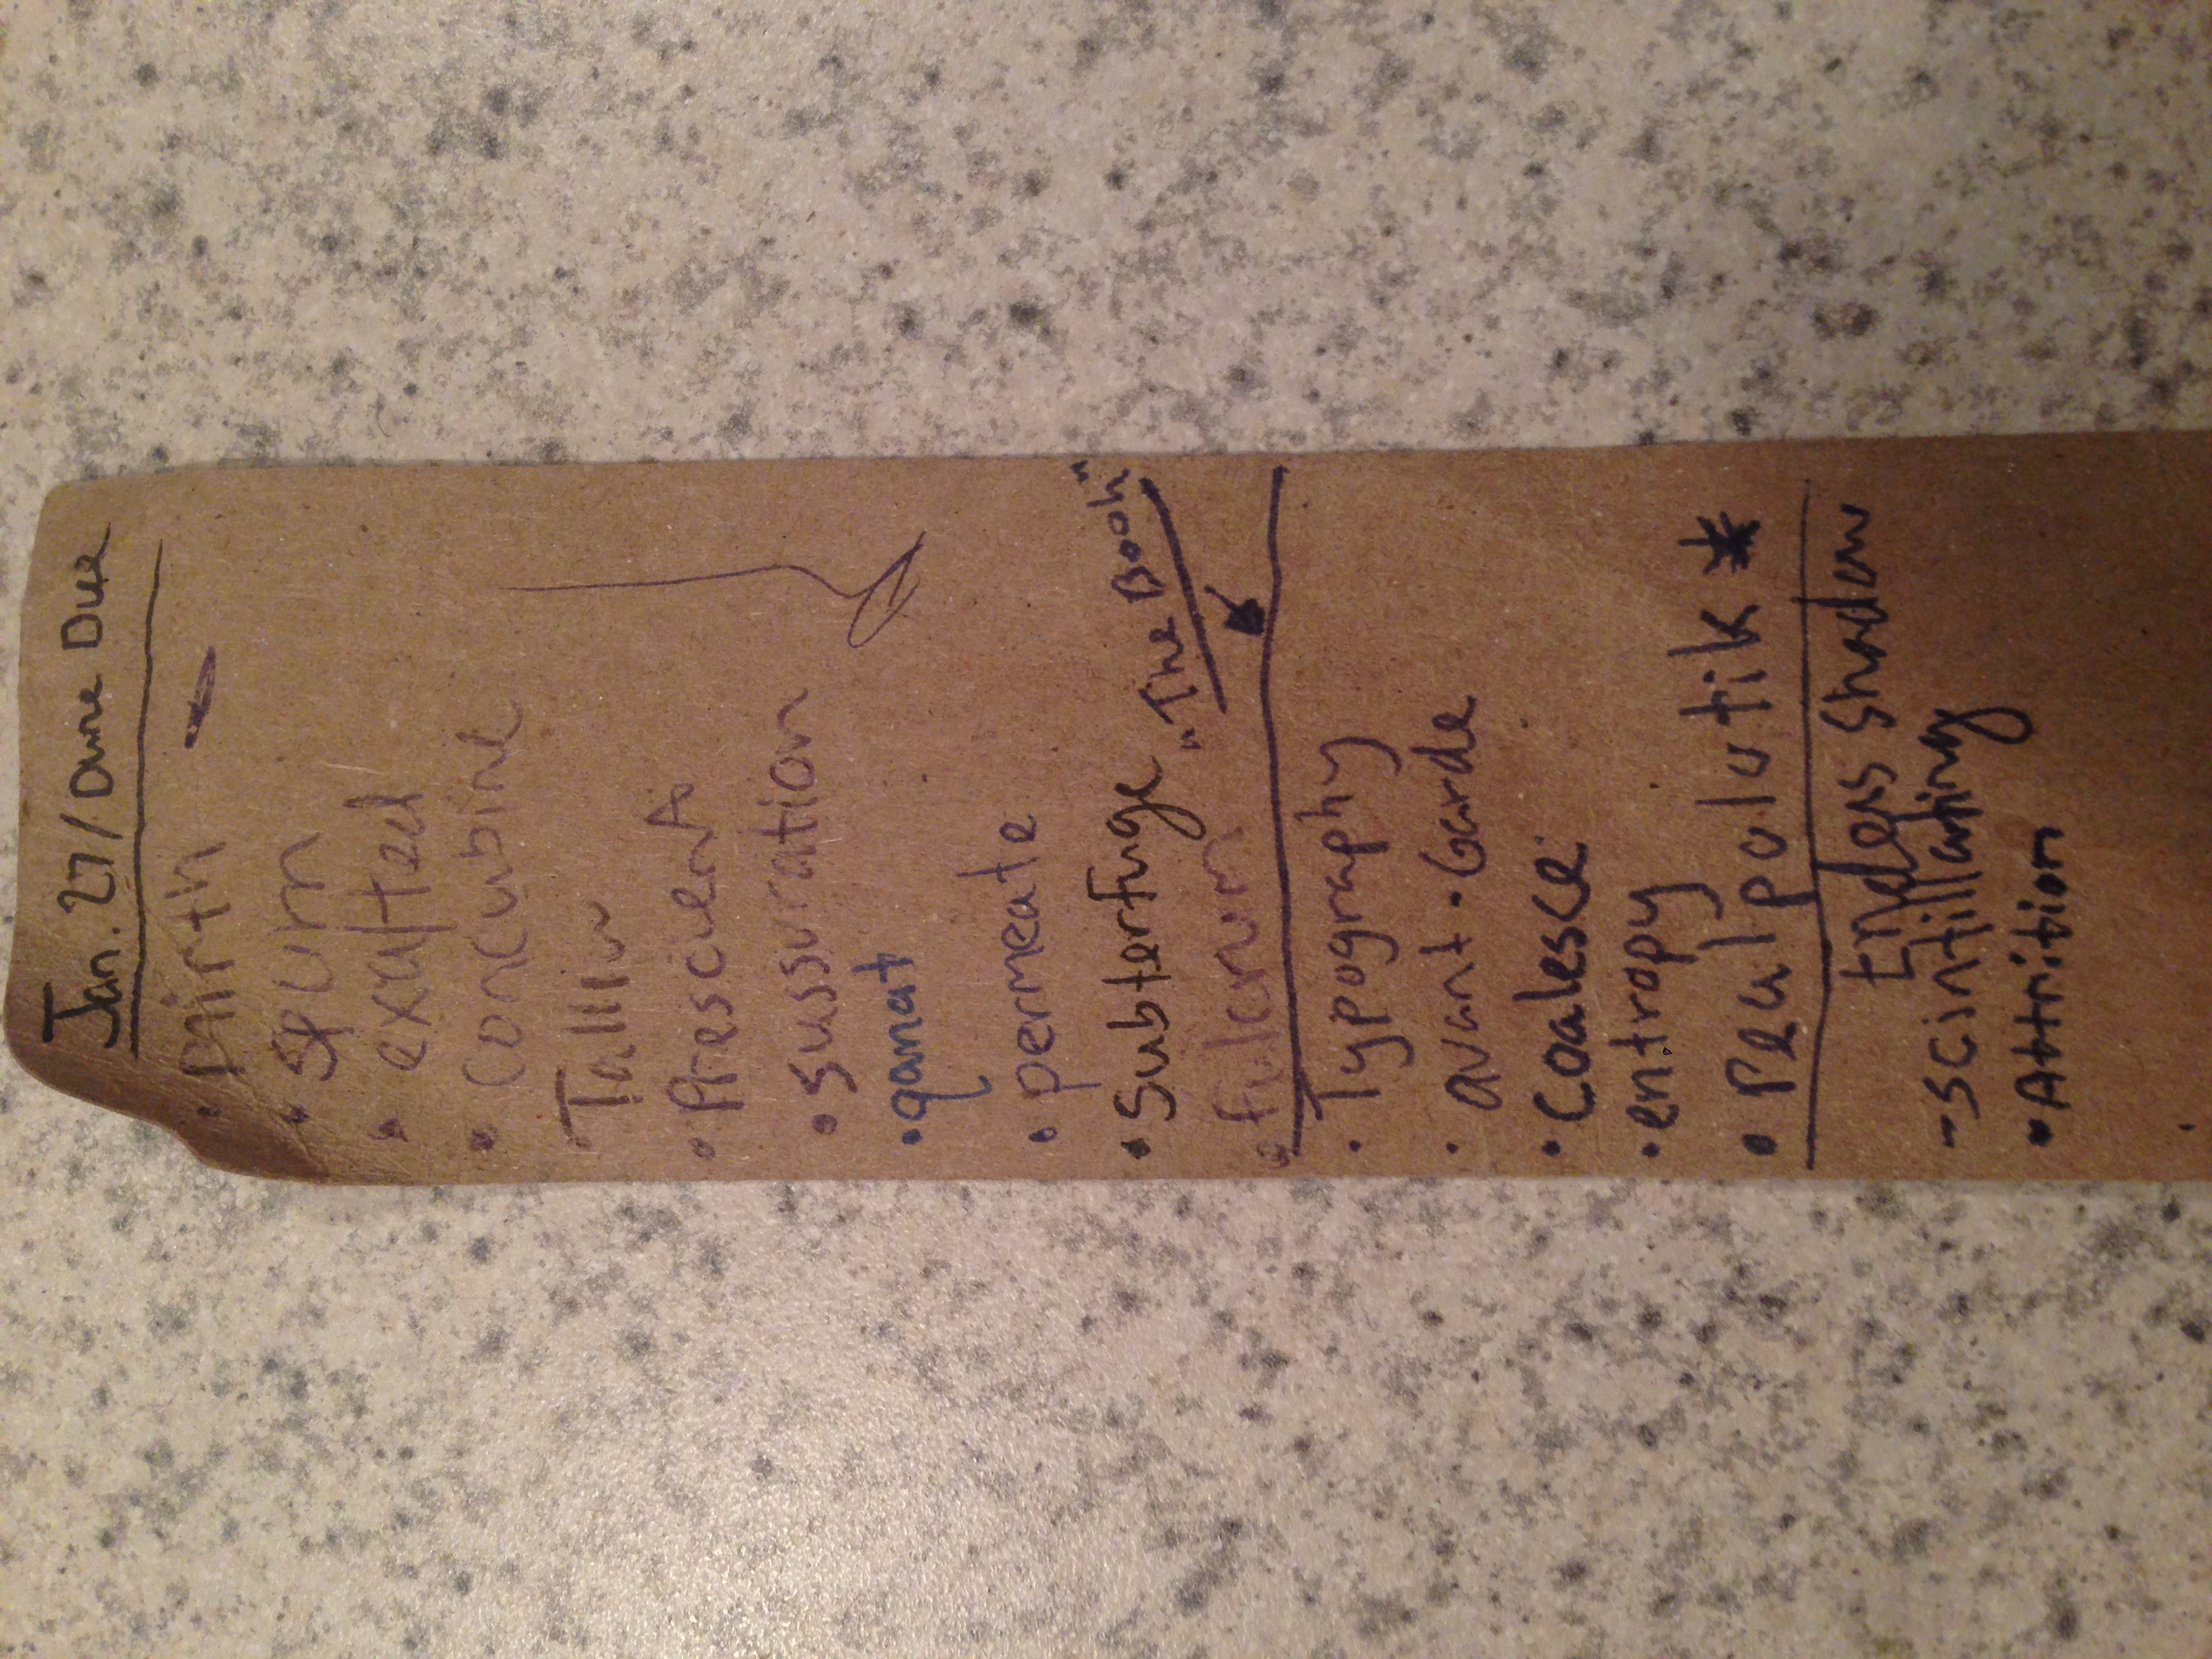 Jan. 27/ Dune Due
• Mirth
• spurn
• exalted
• concubine
• Prescient
• sussuration
• qanat
• permeate
• Subterfuge
"The Book"
• fulcrum
• Typography
• avant-Garde
• Coalesce
• entropy
• realpolotik *
Endless Shadow
- scintillating
• Attrition